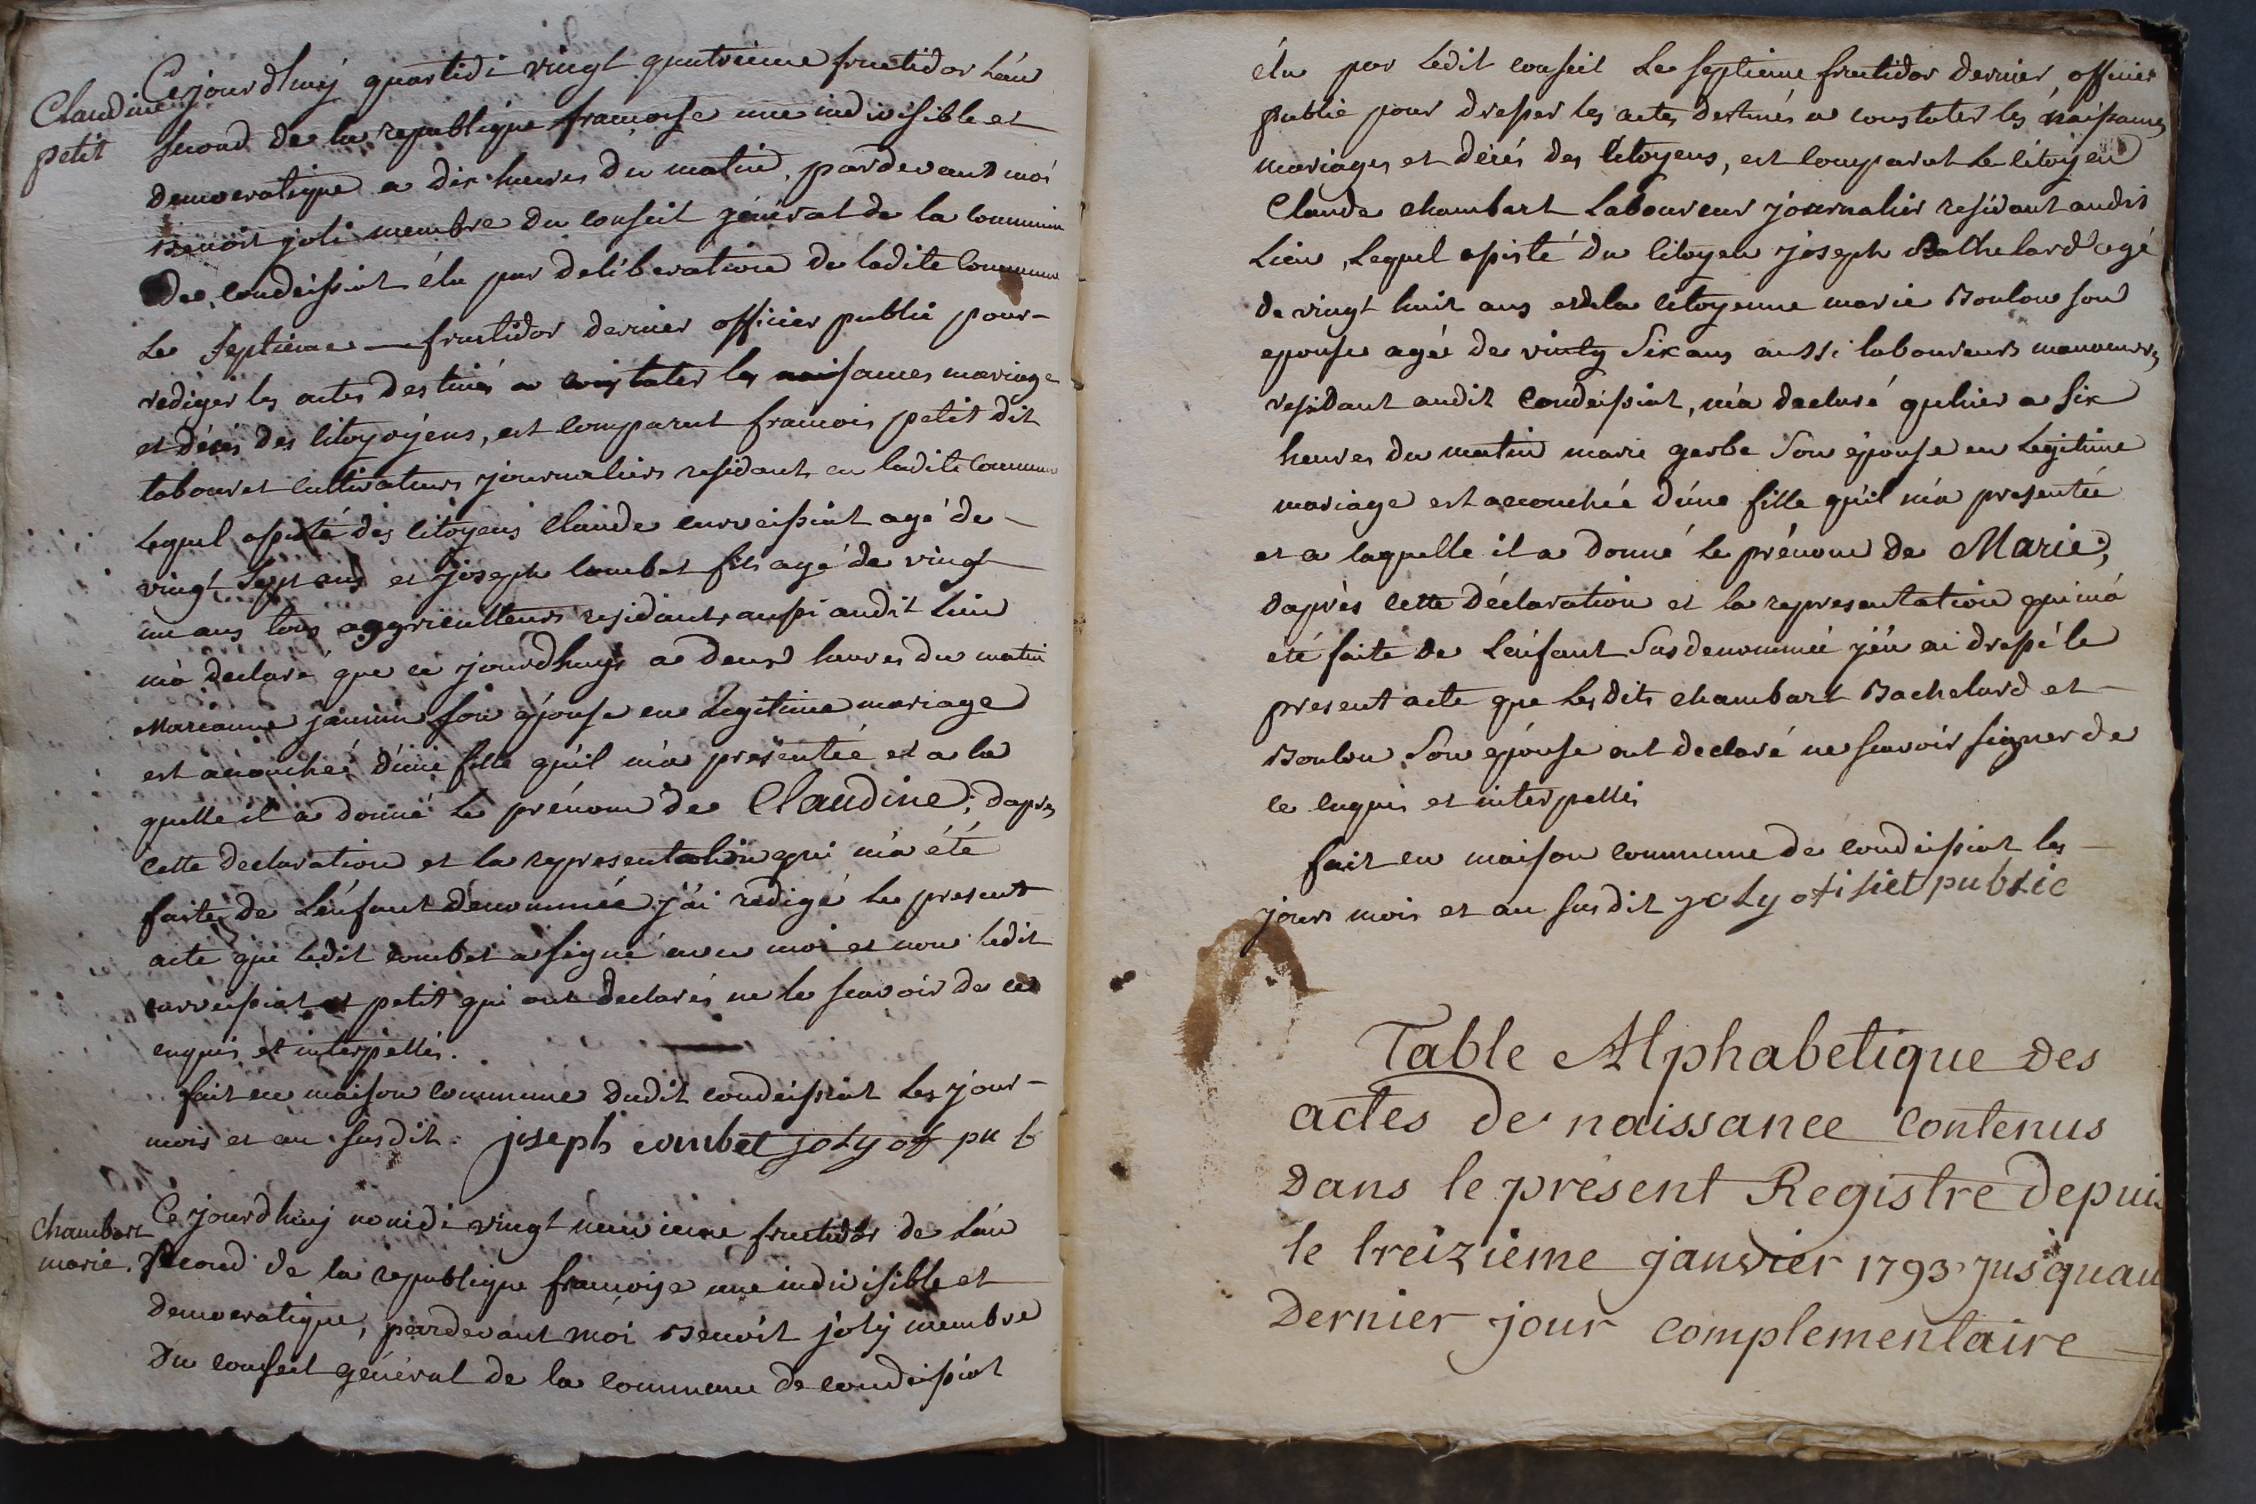 Claudine
petit
Cejourdhuy quartidi vingt quatrieme fructidor L'an
second de la republique francoise une indivisible et
democratique a dix heures du matin, pardevant moi
Benoit joli membre du conseil général de la commune
de condeissiat élu par deliberation de ladite commune
Le septieme — fructidor dernier officier public pour-
rediger les actes destinés a constater les naissances mariage
et décés des citoyoyens, est comparut francois petit dit
labouret cultivateurs journaliers residant en ladite commune
Lequel assisté des citoyens Claude curveissiat agé de -
vingt sept ans et joseph combet fils agé de vingt
un ans tous aggriculteurs residants aussi audit lieu
m'a declaré que ce jourdhuy a deux heures du matin
Marianne janin son épouse en legitime mariage
est acouchée d'une fille qu'il m'a présentée et a la
quelle il a donné le prénom de Claudine; dapres
cette declaration et la representation qui m'a été
faite de L'enfant dénommée j'ai redigé le present
acte que ledit combet a signé avec moi et non ledit
curveissiat et petit qui ont declarés ne le scavoir de ce
enquis et interpellés.
fait en maison commune dudit condeissiat les jour-
mois et an susdit. joseph combet joly of pu b
Chambart
marie.
Ce jourdhuy nonidi vingt neuvieme fructidor de L'an
second de la republique françoise une indivisible et
democratique, pardevant moi Benoit joly membre
Du conseil général de la commune de condeissiat
élu par Ledit conseil Le septieme fructidor dernier, officier
public pour dresser les actes destinés a constater les naissances
mariages et décés des Citoyens, est comparut Le citoyen
Claude chambart Laboureur journalier residant audit
Lieu, Lequel assisté du citoyen joseph Bathelard agé
de vingt huit ans et de la citoyenne marie Boulon son
epouse agée de vinty six ans aussi laboureurs manoeuvres
residant audit Condeissiat, m'a declaré quhier a six
heures du matin marie gerbe son épouse en Legitime
mariage est accouchée d'une fille qu'il m'a presentée
et a laquelle il a donné Le prénom de Marie,
daprès cette déclaration et la representation qui m'a
eté faite de L'enfant susdenommée j'en ai dressé le
present acte que Lesdits chambart Bachelard et -
Boulon son epouse ont declaré ne scavoir signer de
ce enquis et interpellés
fait en maison commune de condeissiat les -
jours mois et an susdit joly ofisiet public
Table Alphabetique des
actes de naissance contenus
Dans le présent Registre depuis
le treizieme janvier 1793 jusquau
Dernier jour complementaire